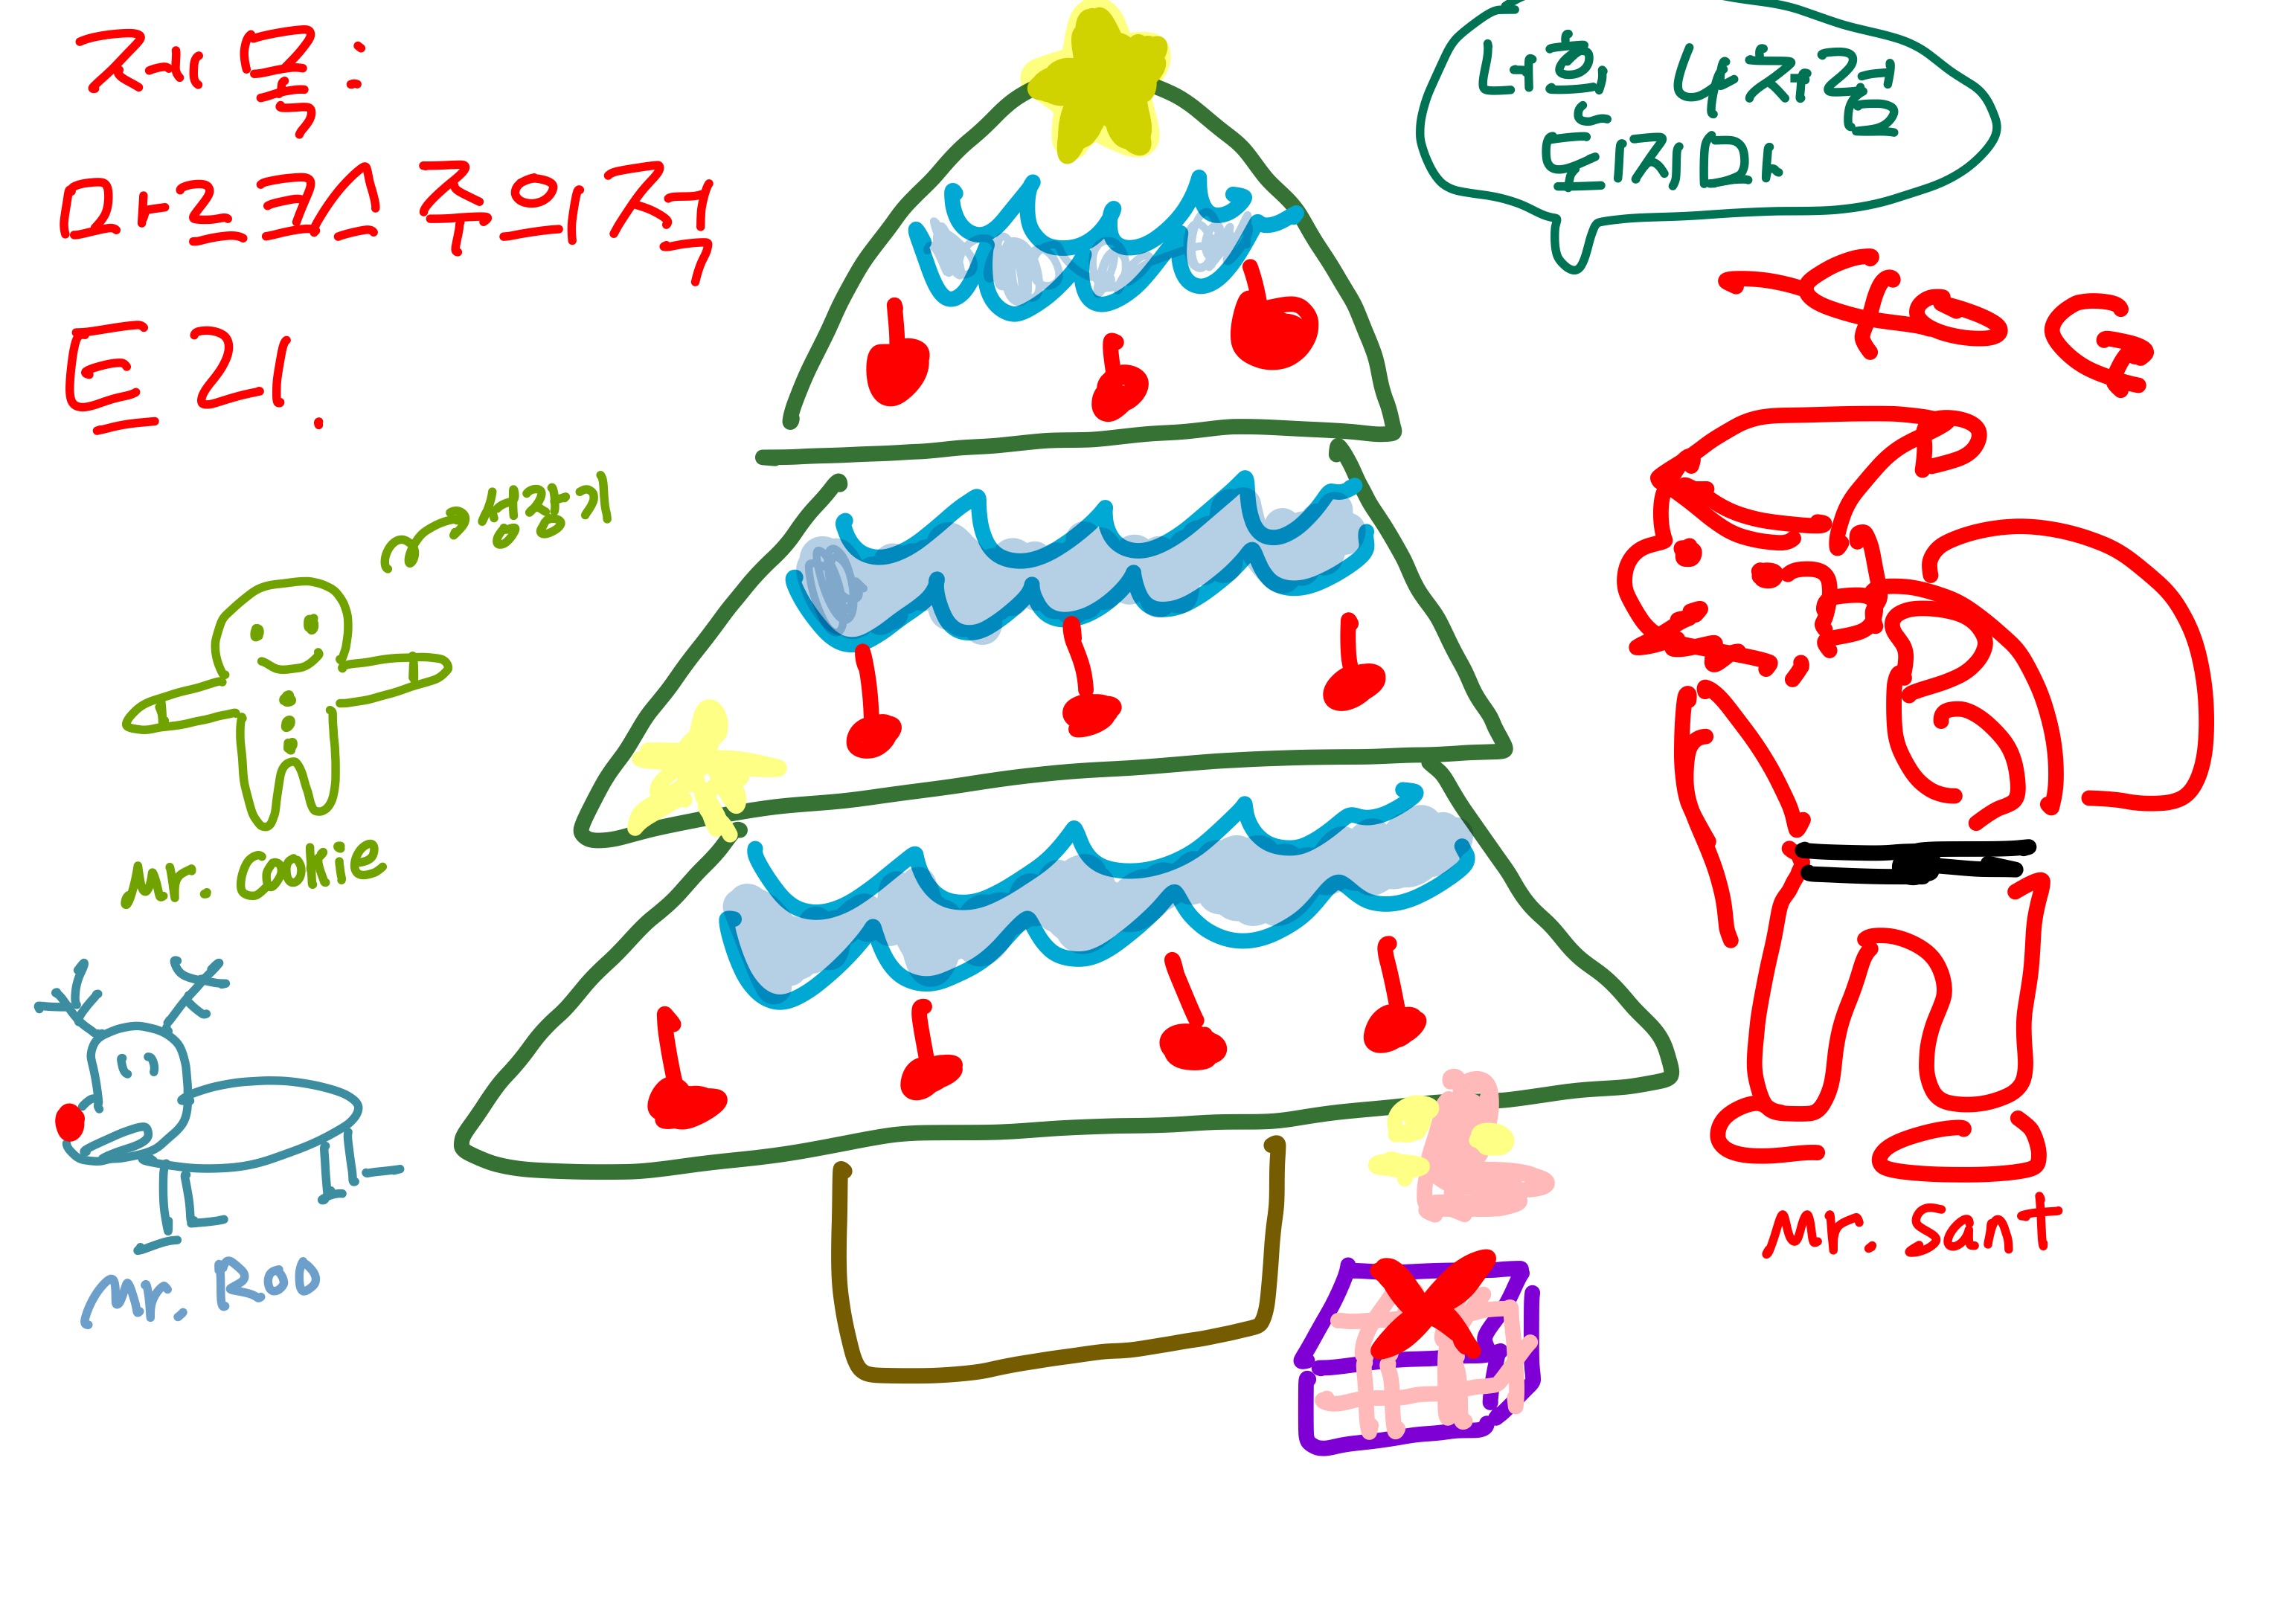 제목:
마르크스주의적
트리.
너흰 나처럼
되지마
생강기
Mr. cookie
Mr. ROO
Mr. Sant